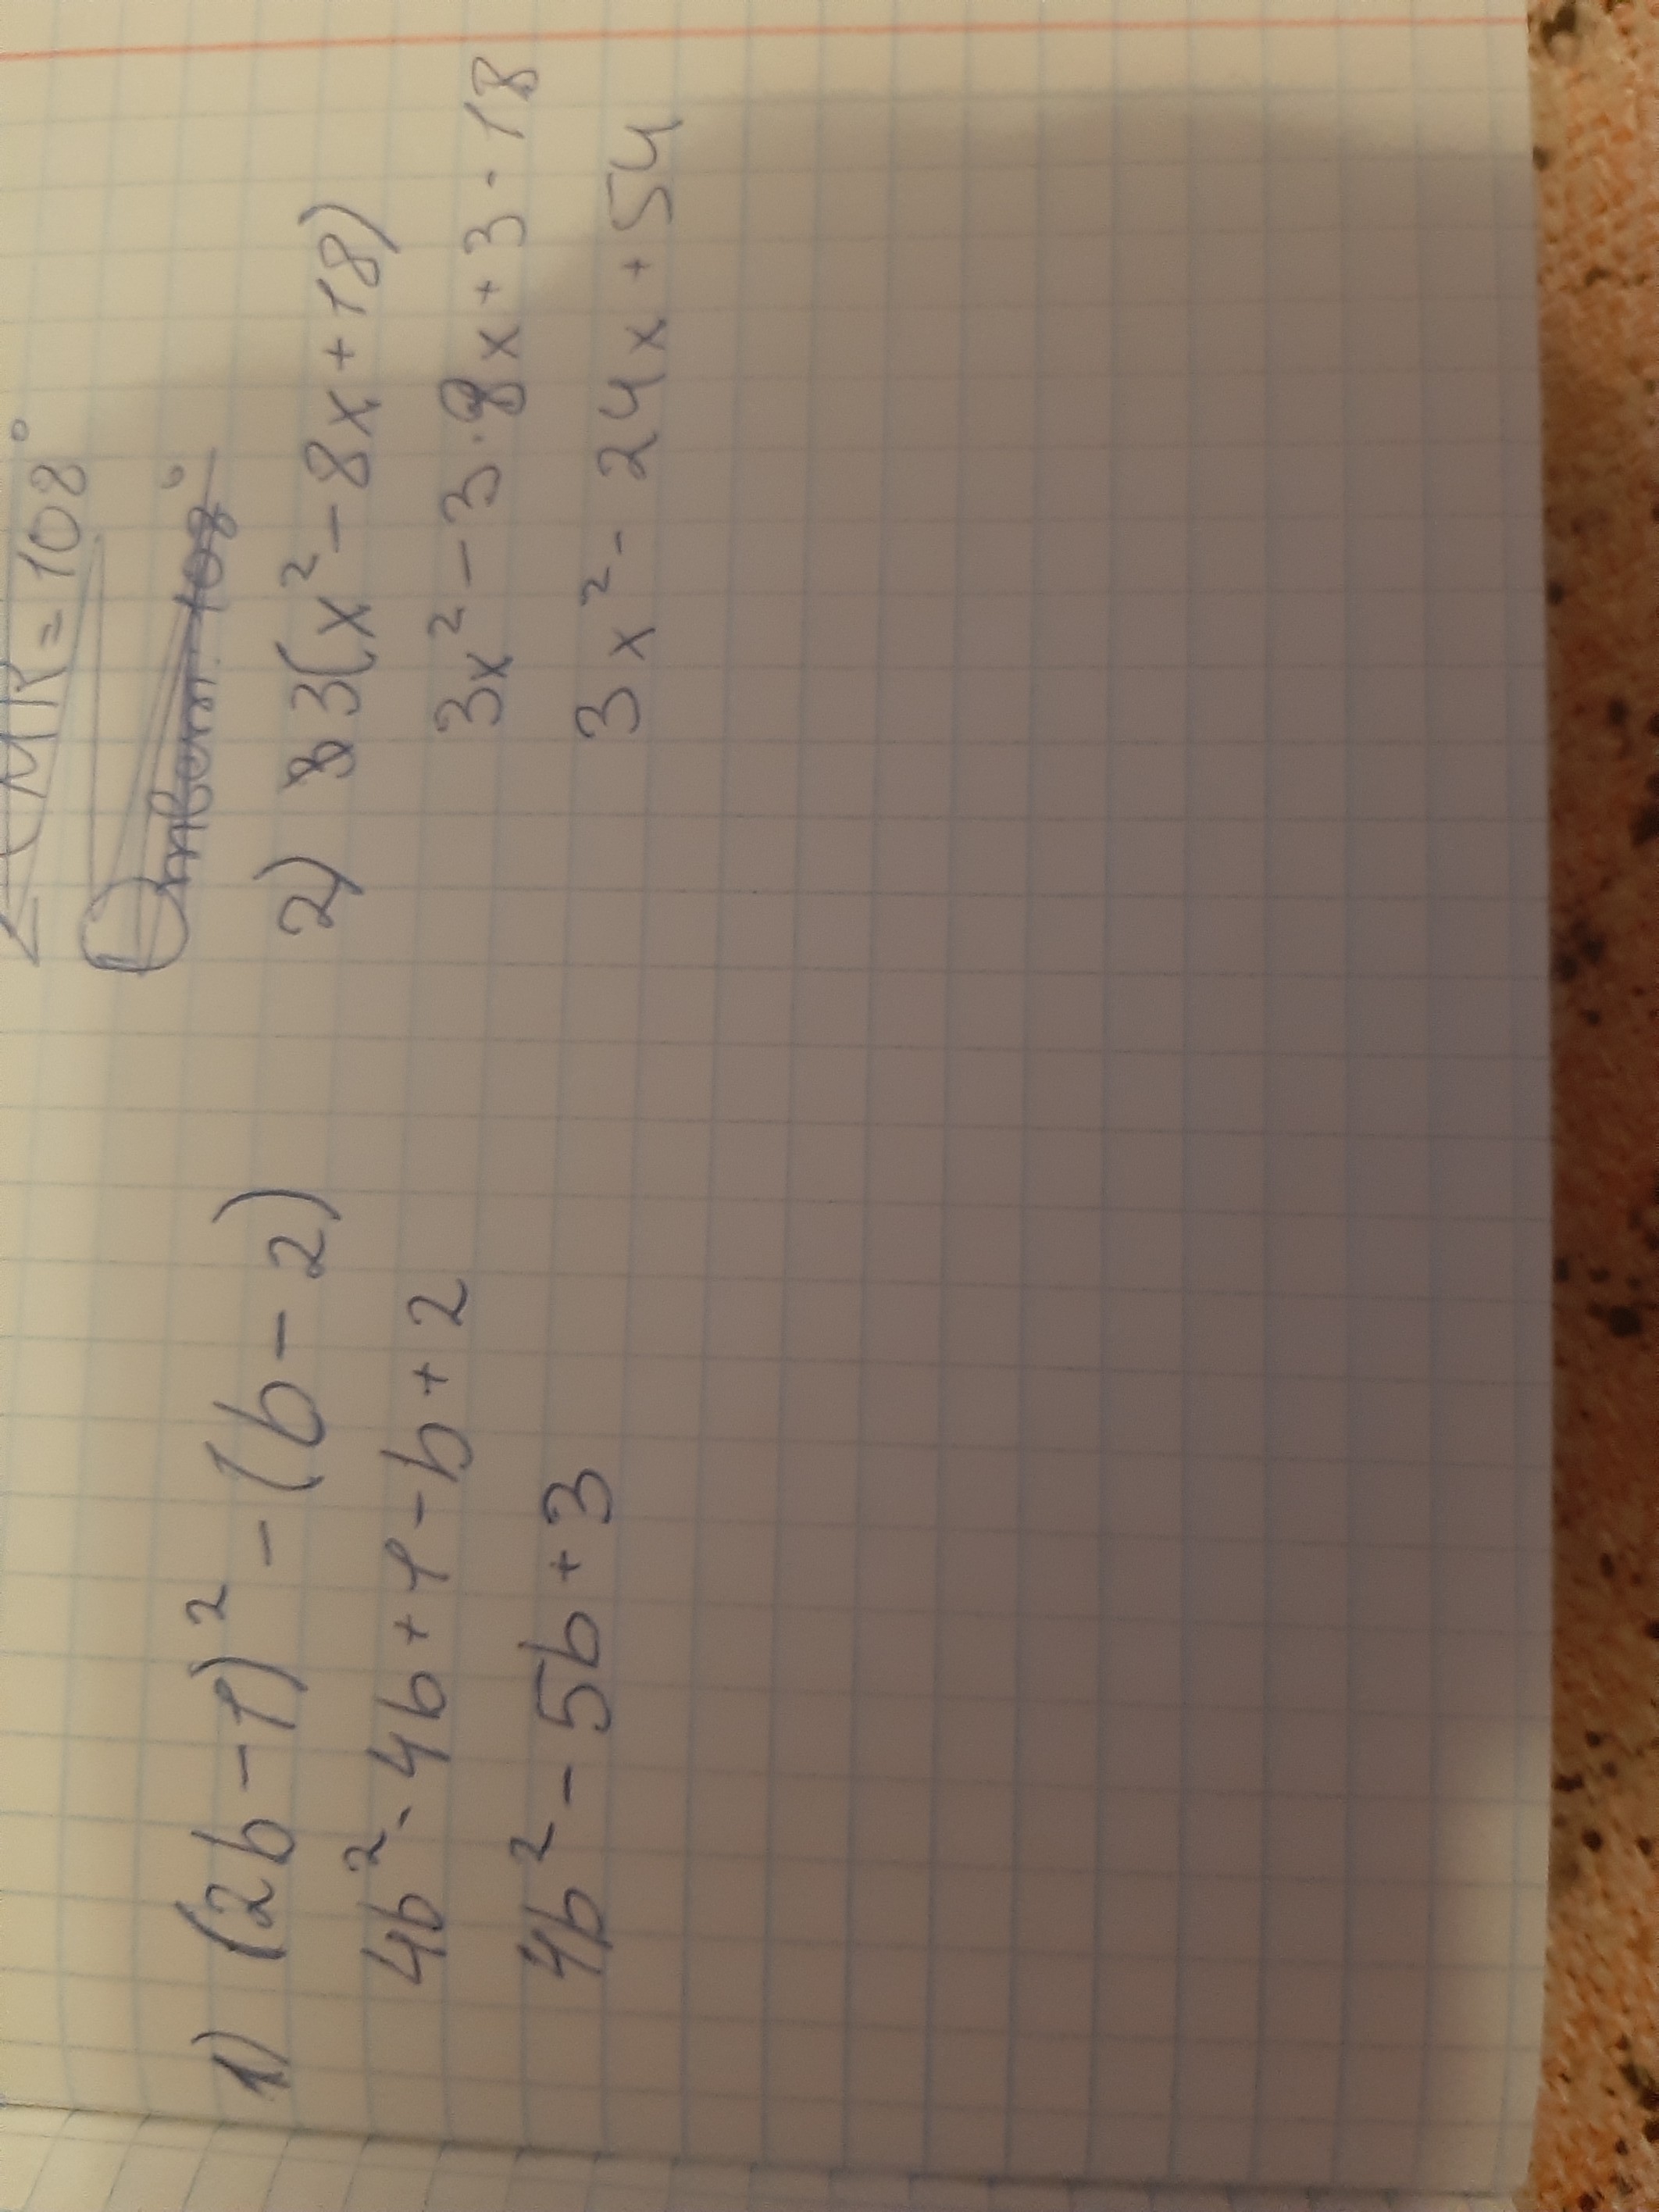 MK = 108°
Ответ: 108°
1) (2b - 1)² - (b - 2)
4b² - 4b + 1 - b + 2
4b² - 5b + 3
2) 3(x² - 8x + 18)
3x² - 3 · 8x + 3 · 18
3x² - 24x + 54